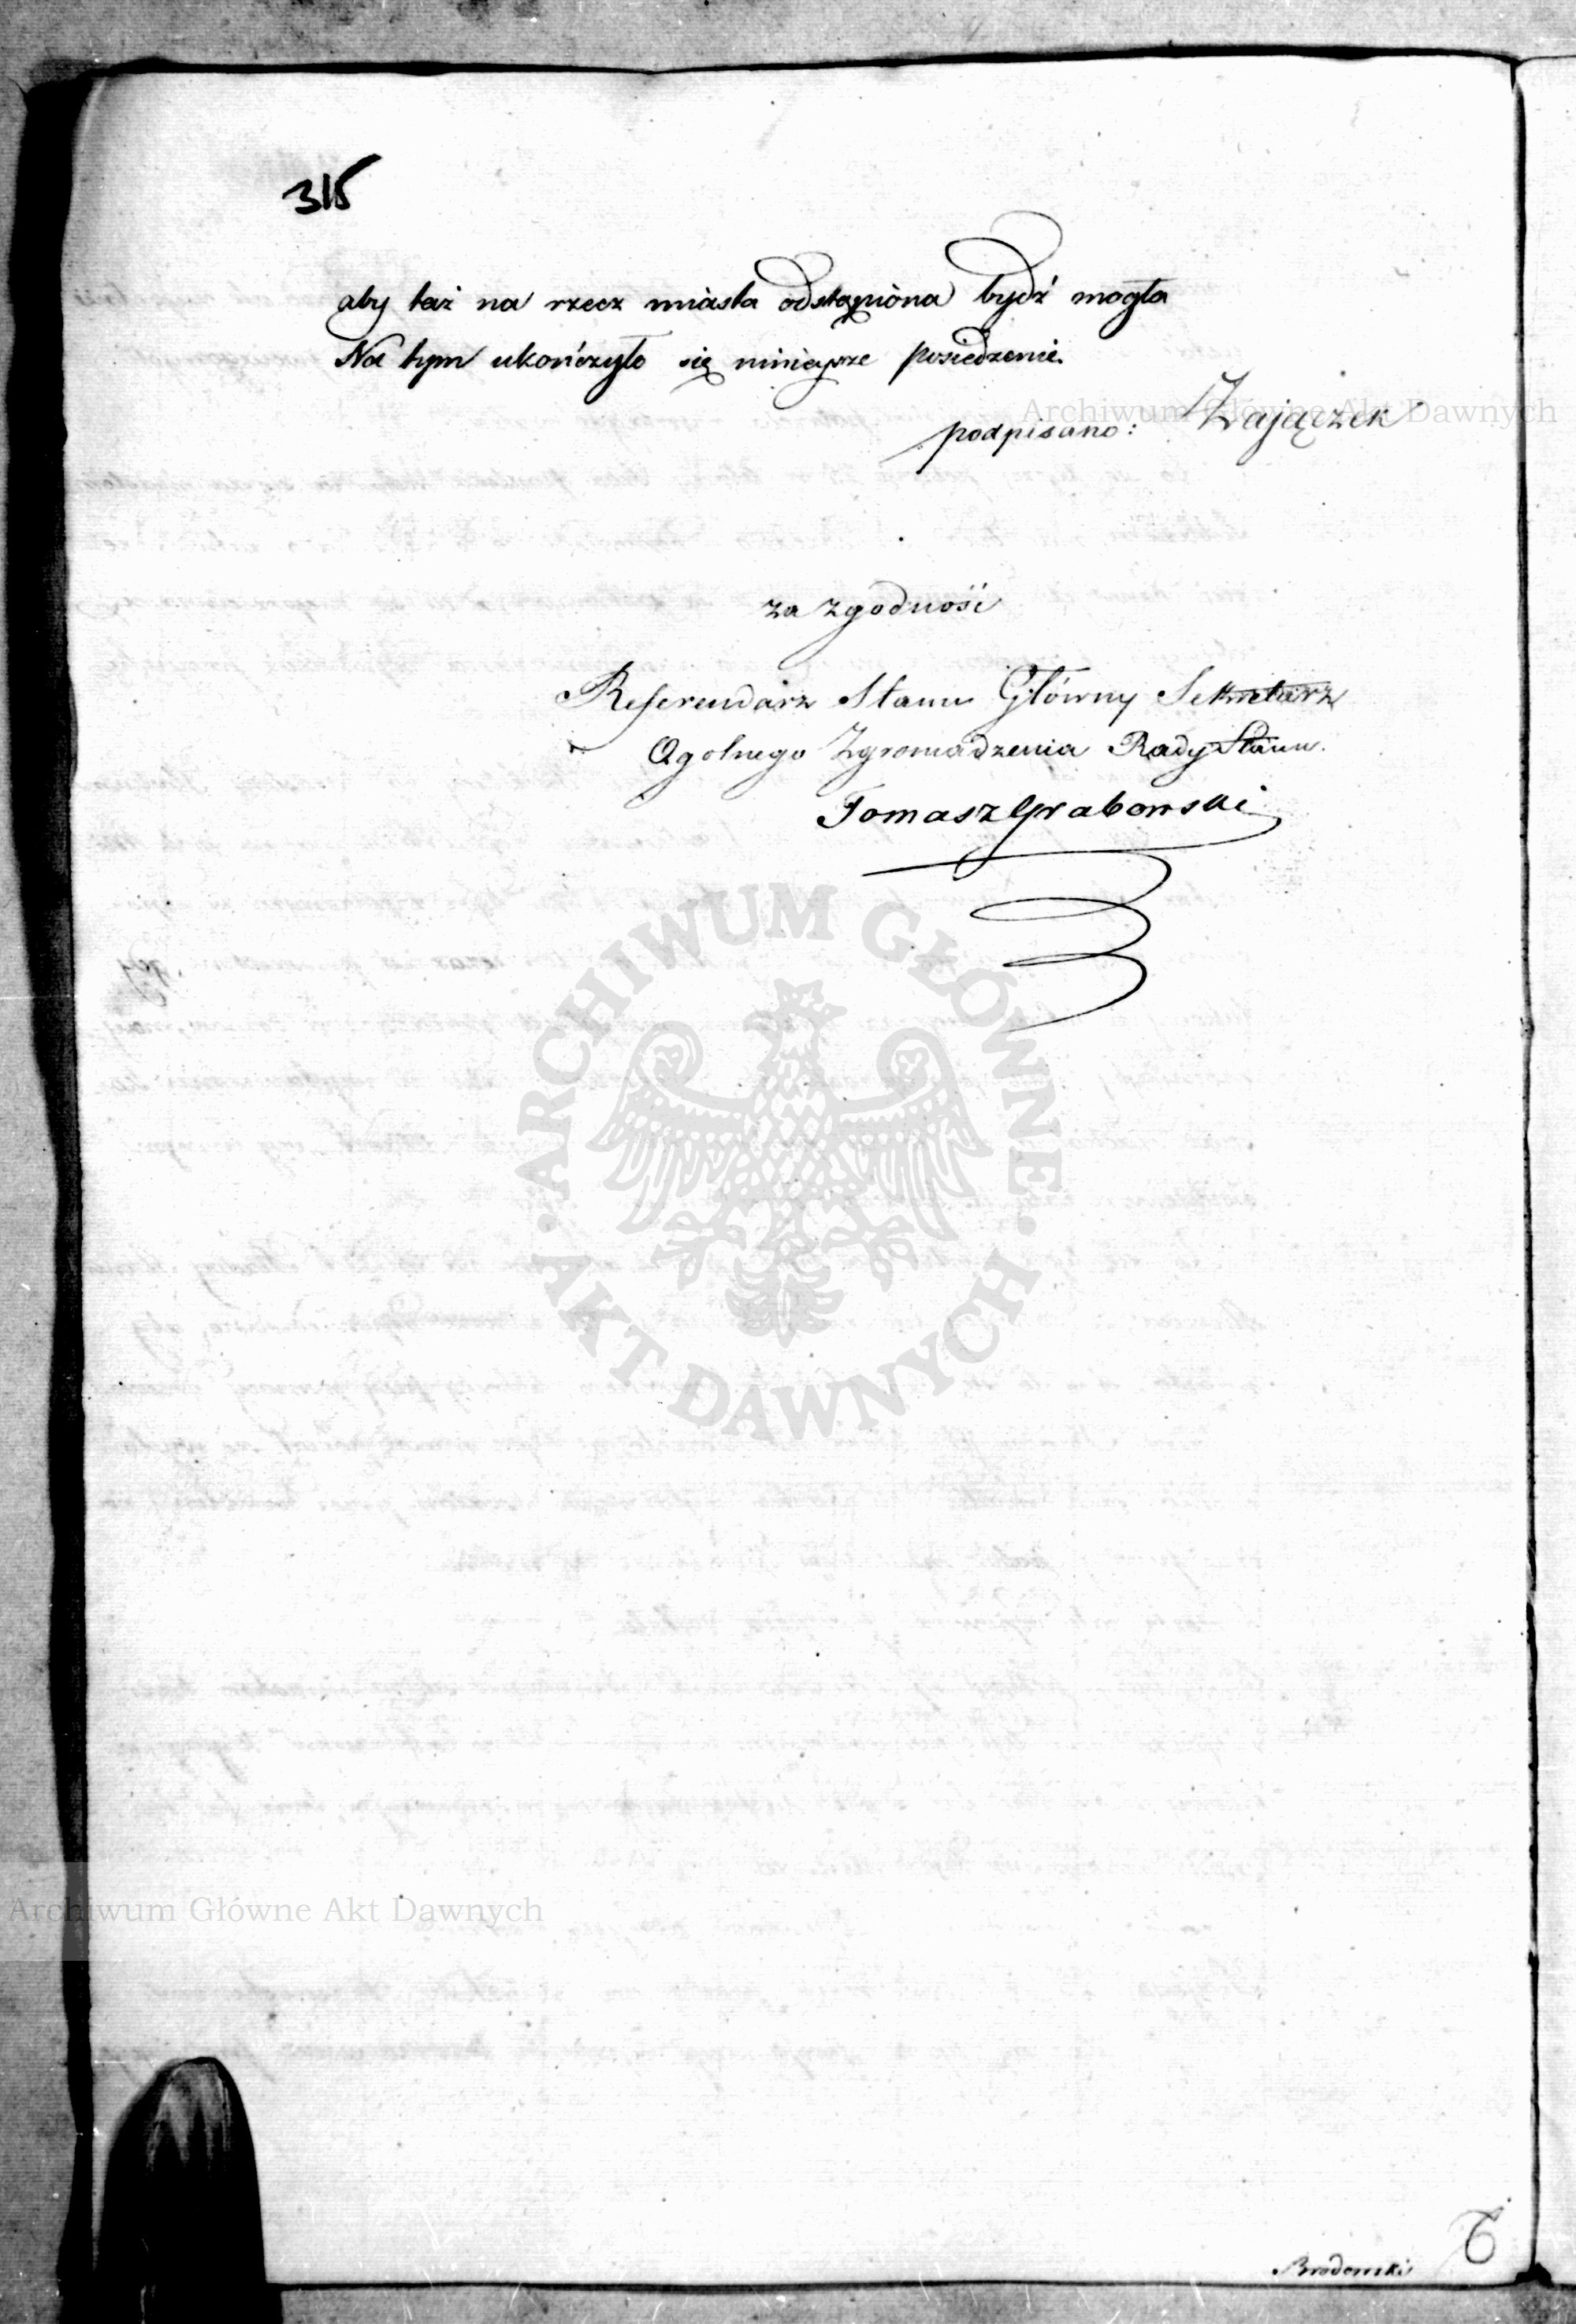 315
aby taż na rzecz miasta odstąpiona bydź mogła
Na tym ukończyło się ninieysze posiedzenie.
podpisano: Zajączek
za zgodność
Referendarz Stanu Główny Sekretarz
Ogolnego Zgromadzenia Rady Stanu.
Tomasz Grabowski
ARCHIWUM GŁÓWNE AKT DAWNYCH
Archiwum Główne Akt Dawnych
Archiwum Główne Akt Dawnych
Brodowski